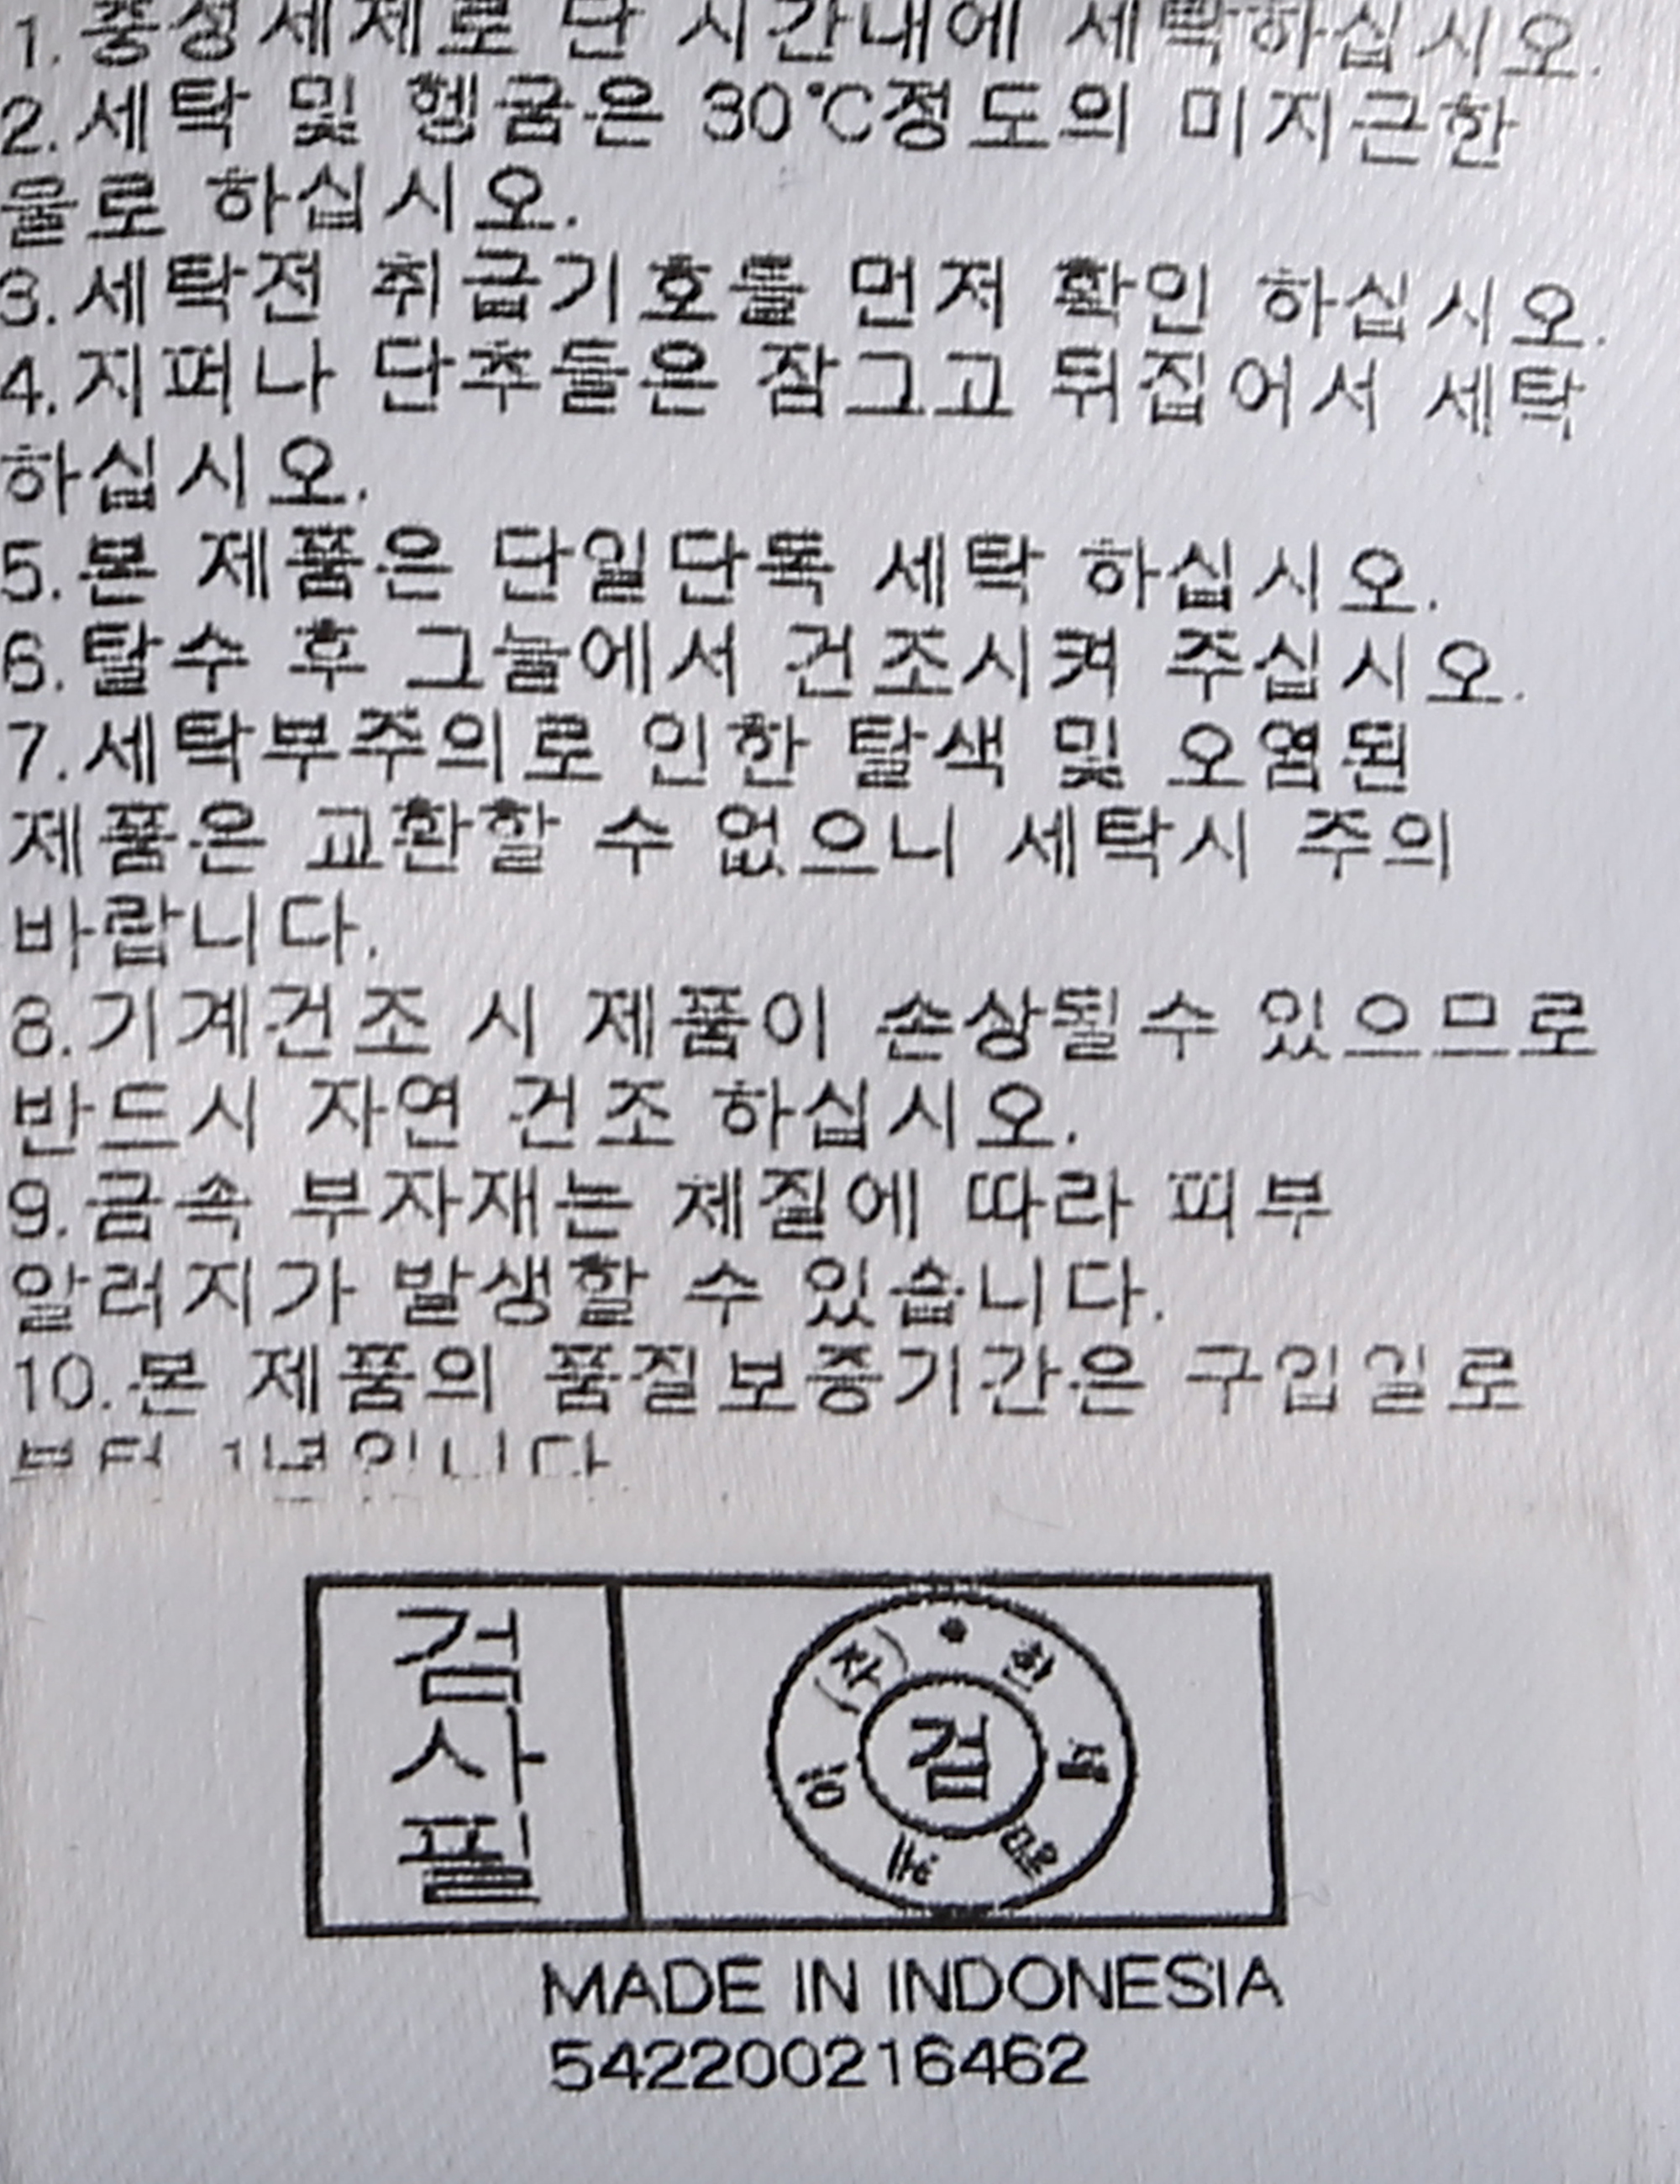 1.중성세제로 단 시간내에 세탁하십시오.
2.세탁 및 헹굼은 30℃정도의 미지근한
물로 하십시오.
3.세탁전 취급기호를 먼저 확인 하십시오.
4.지퍼나 단추들은 잠그고 뒤집어서 세탁
하십시오.
5.본 제품은 단일단독 세탁 하십시오.
6.탈수 후 그늘에서 건조시켜 주십시오.
7.세탁부주의로 인한 탈색 및 오염된
제품은 교환할 수 없으니 세탁시 주의
바랍니다.
8.기계건조 시 제품이 손상될수 있으므로
반드시 자연 건조 하십시오.
9.금속 부자재는 체질에 따라 피부
알러지가 발생할 수 있습니다.
10.본 제품의 품질보증기간은 구입일로
부터 1년입니다
검사필
검
MADE IN INDONESIA
542200216462